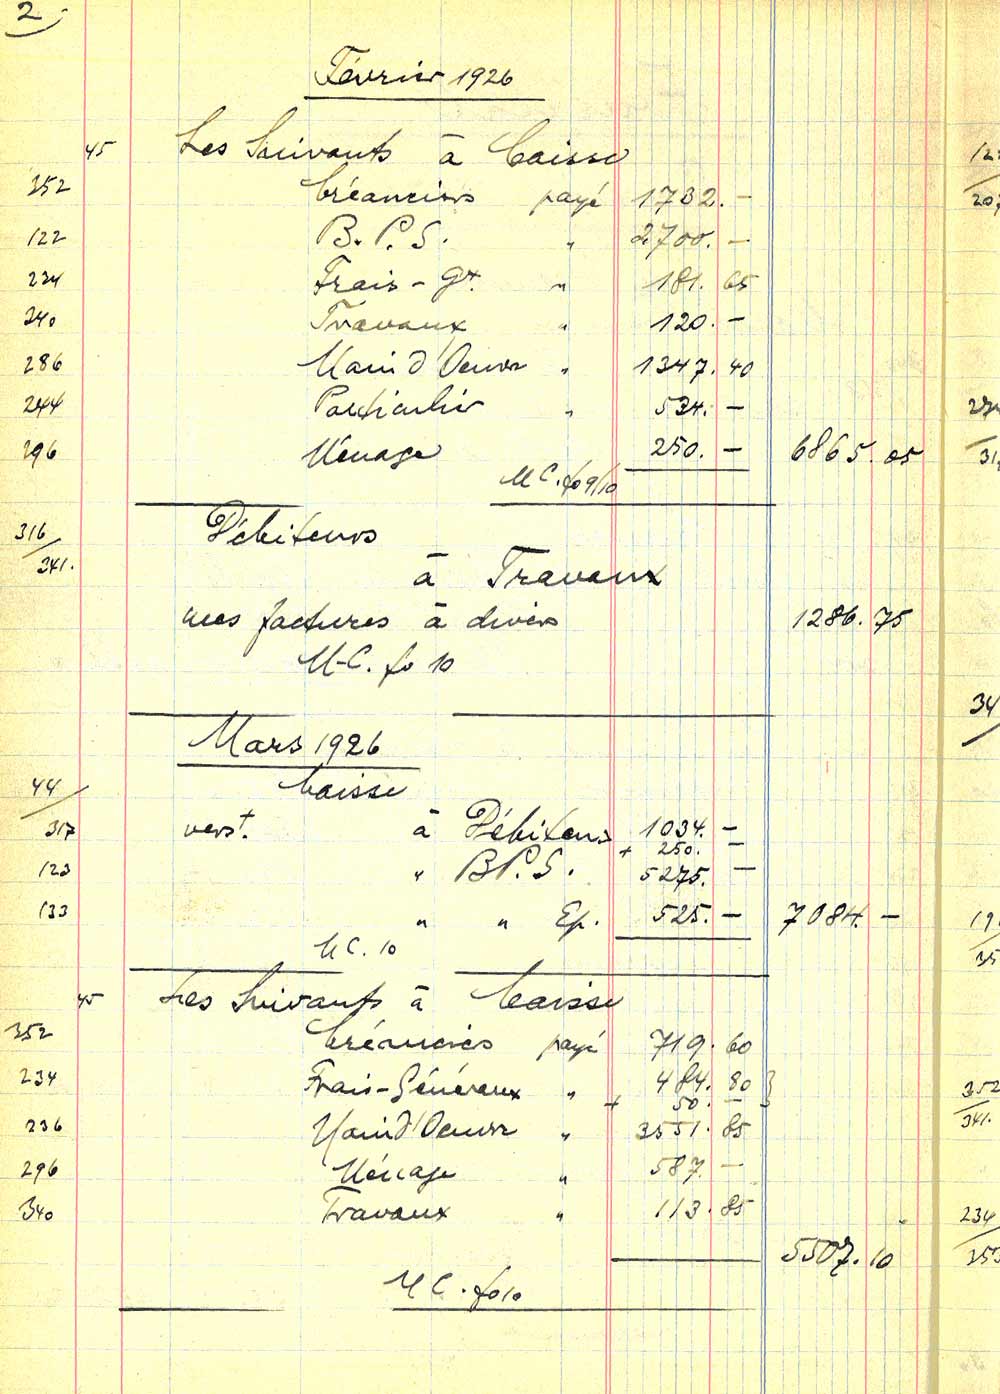 2
Février 1926
45 Les Suivants à Caisse
352 Créanciers payé 1732. —
122 B. P. S. " 2700. —
234 Frais - Gx. " 181. 65
340 Travaux " 120. —
286 Main d'Oeuvr " 1347. 40
244 Particulier " 534. —
296 Ménage 250. — 6865. 05
M C. fo 9/10
316 / 341. Débiteurs
à Travaux
mes factures à divers 1286. 75
M-C. fo 10
Mars 1926
44 / Caisse
317 verst. à Débiteurs 1034. —
+ 250. —
123 " B P. S. 5275. —
133 " " Ep. 525. — 7084. —
M C. 10
45 Les Suivants à Caisse
352 Créanciers payé 719. 60
234 Frais-Généraux " 484. 80
+ 50. —
236 Main d'Oeuvr " 3551. 85
296 Ménage " 587. —
340 Travaux " 113. 85
5507. 10
M C. fo 10
34
352 / 341.
234 /